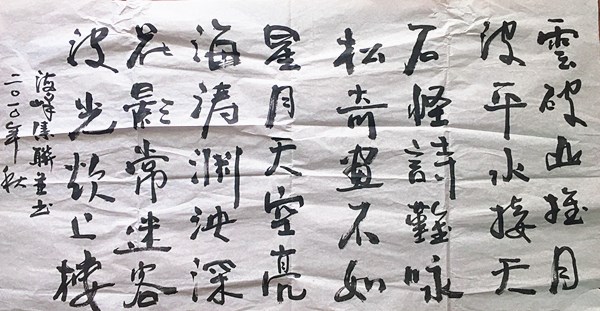 雲破山推月
波平水接天
石怪詩難詠
松奇畫不如
星月天空亮
海涛渊泱深
花影常迷客
波光欲上樓
海峰 聯並书
二〇一〇年秋